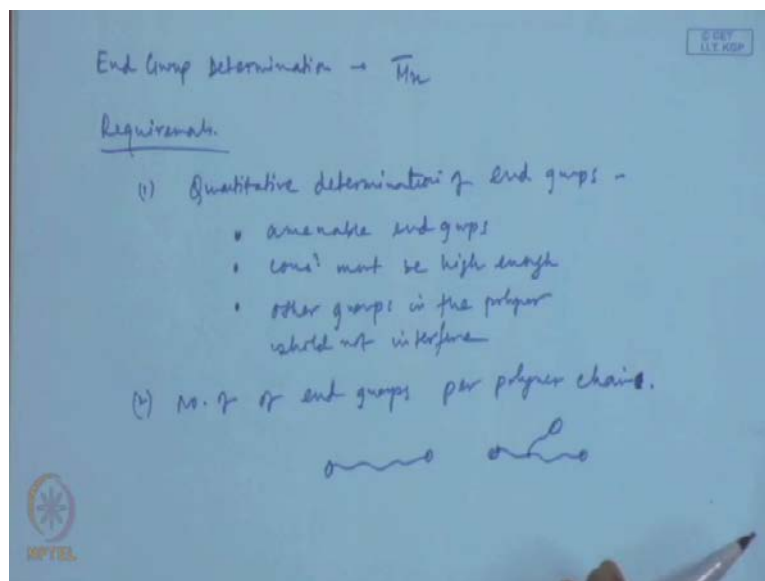 © CET
I.I.T. KGP
End Group Determination → M̄n
Requirements.
(1) Quantitative determination of end groups -
• amenable end groups
• concⁿ must be high enough
• other groups in the polymer
should not interfere
(2) No. of of end groups per polymer chain.
NPTEL